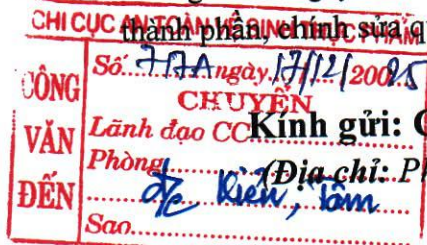 CHI CỤC AN TOÀN VỆ SINH THỰC PHẨM
thành phần, chính sửa q
CÔNG VĂN ĐẾN
Số: 77A ngày 17/12/20025
CHUYỂN
Lãnh đạo CC
Kính gửi: C
Phòng
(Địa chỉ: P
đ/c Kiên, Tâm
Sao